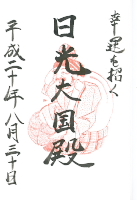 幸運を招く
日光大国殿
平成二十年八月三十日